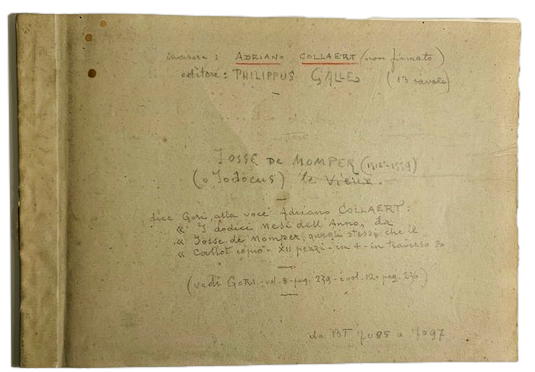 incisore: ADRIANO COLLAERT (non firmato)
editore: PHILIPPUS GALLE (13 tavole)
JOSSE DE MOMPER
(o Jodocus) le Vieux.
dice Gori, alla voce Adriano COLLAERT:
" I dodici Mesi dell'Anno, da
" Josse de Momper, quegli stessi che il
" Callot copiò - XII pezzi - in 4 - in traverso
(vedi Gori - vol. 8 - pag. 239 - vol. 12 pag. 230)
da BT 7085 a 7097